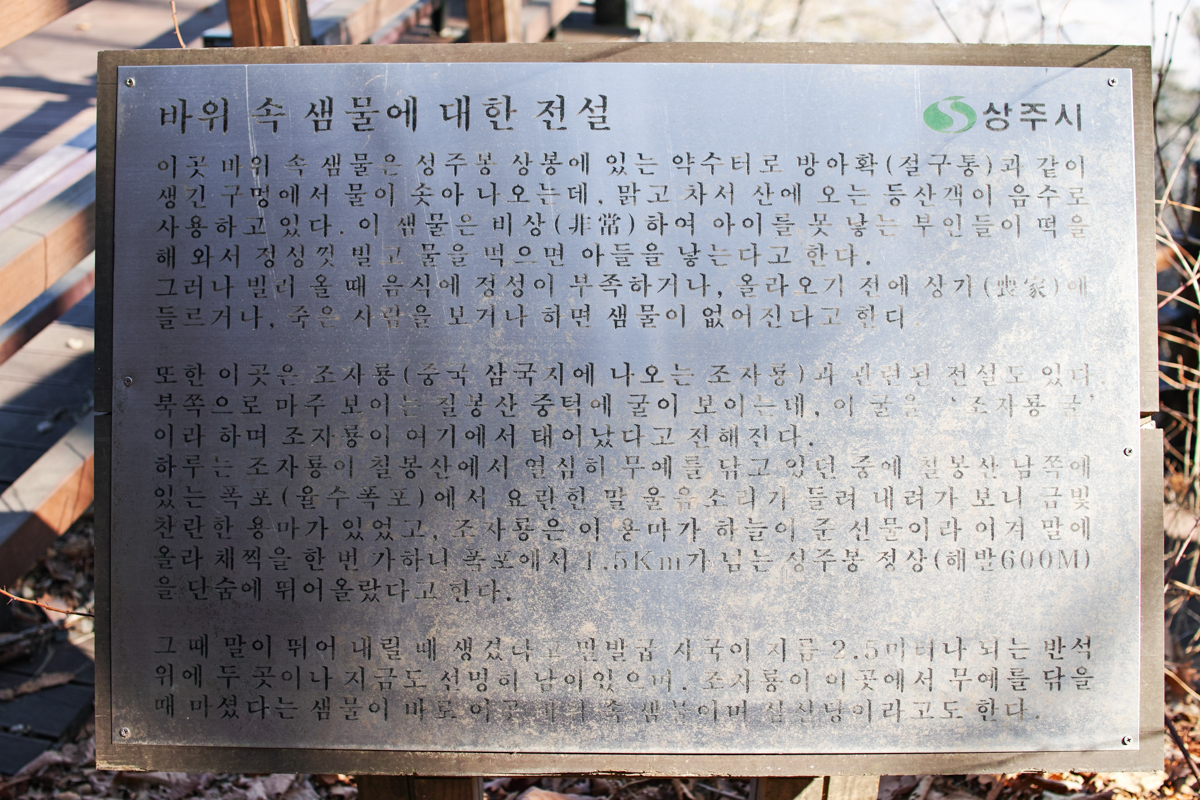 바위 속 샘물에 대한 전설
상주시
이곳 바위 속 샘물은 성주봉 상봉에 있는 약수터로 방아확(절구통)과 같이
생긴 구멍에서 물이 솟아 나오는데, 맑고 차서 산에 오는 등산객이 음수로
사용하고 있다. 이 샘물은 비상(非常)하여 아이를 못 낳는 부인들이 떡을
해 와서 정성껏 빌고 물을 먹으면 아들을 낳는다고 한다.
그러나 빌러 올 때 음식에 정성이 부족하거나, 올라오기 전에 상가(喪家)에
들르거나, 죽은 사람을 보거나 하면 샘물이 없어진다고 한다
또한 이곳은 조자룡(중국 삼국지에 나오는 조자룡)과 관련된 전설도 있다.
북쪽으로 마주 보이는 칠봉산 중턱에 굴이 보이는데, 이 굴을 '조자룡 굴'
이라 하며 조자룡이 여기에서 태어났다고 전해진다.
하루는 조자룡이 칠봉산에서 열심히 무예를 닦고 있던 중에 칠봉산 남쪽에
있는 폭포(율수폭포)에서 요란한 말 울음소리가 들려 내려가 보니 금빛
찬란한 용마가 있었고, 조자룡은 이 용마가 하늘이 준 선물이라 여겨 말에
올라 채찍을 한 번 가하니 폭포에서 1.5Km가 넘는 성주봉 정상(해발600M)
을 단숨에 뛰어올랐다고 한다.
그 때 말이 뛰어 내릴 때 생겼다고 말발굽 자국이 지름 2.5미터나 되는 반석
위에 두 곳이나 지금도 선명히 남아있으며. 조자룡이 이곳에서 무예를 닦을
때 마셨다는 샘물이 바로 이곳 바위 속 샘물이며 이라고도 한다.